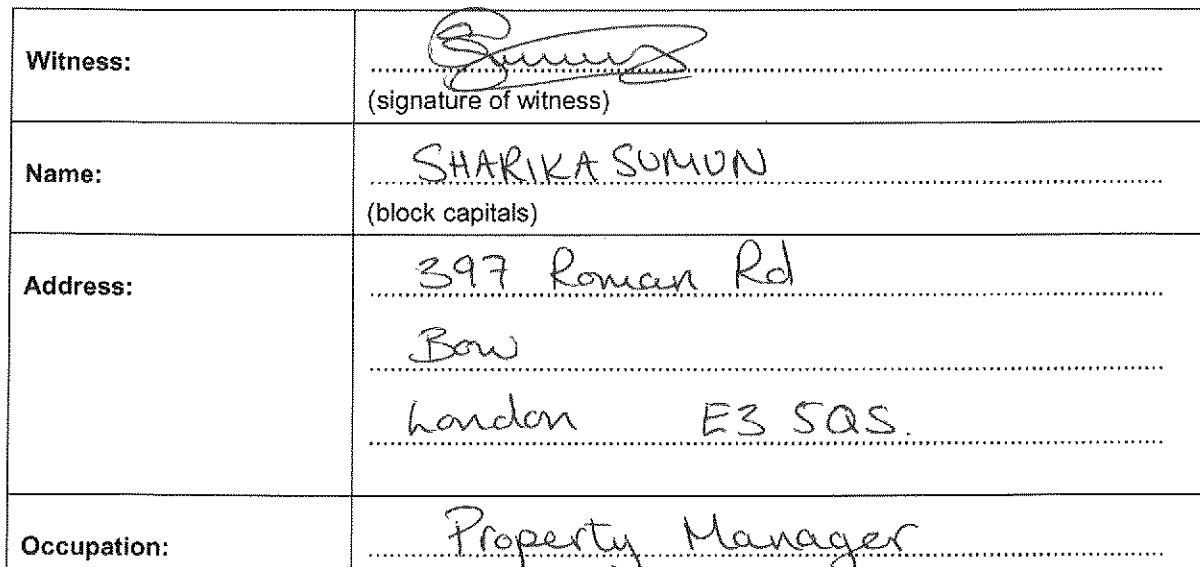 Witness:
(signature of witness)
Name:
SHARIKA SUMUN
(block capitals)
Address:
397 Roman Rd
Bow
London E3 5QS.
Occupation:
Property Manager